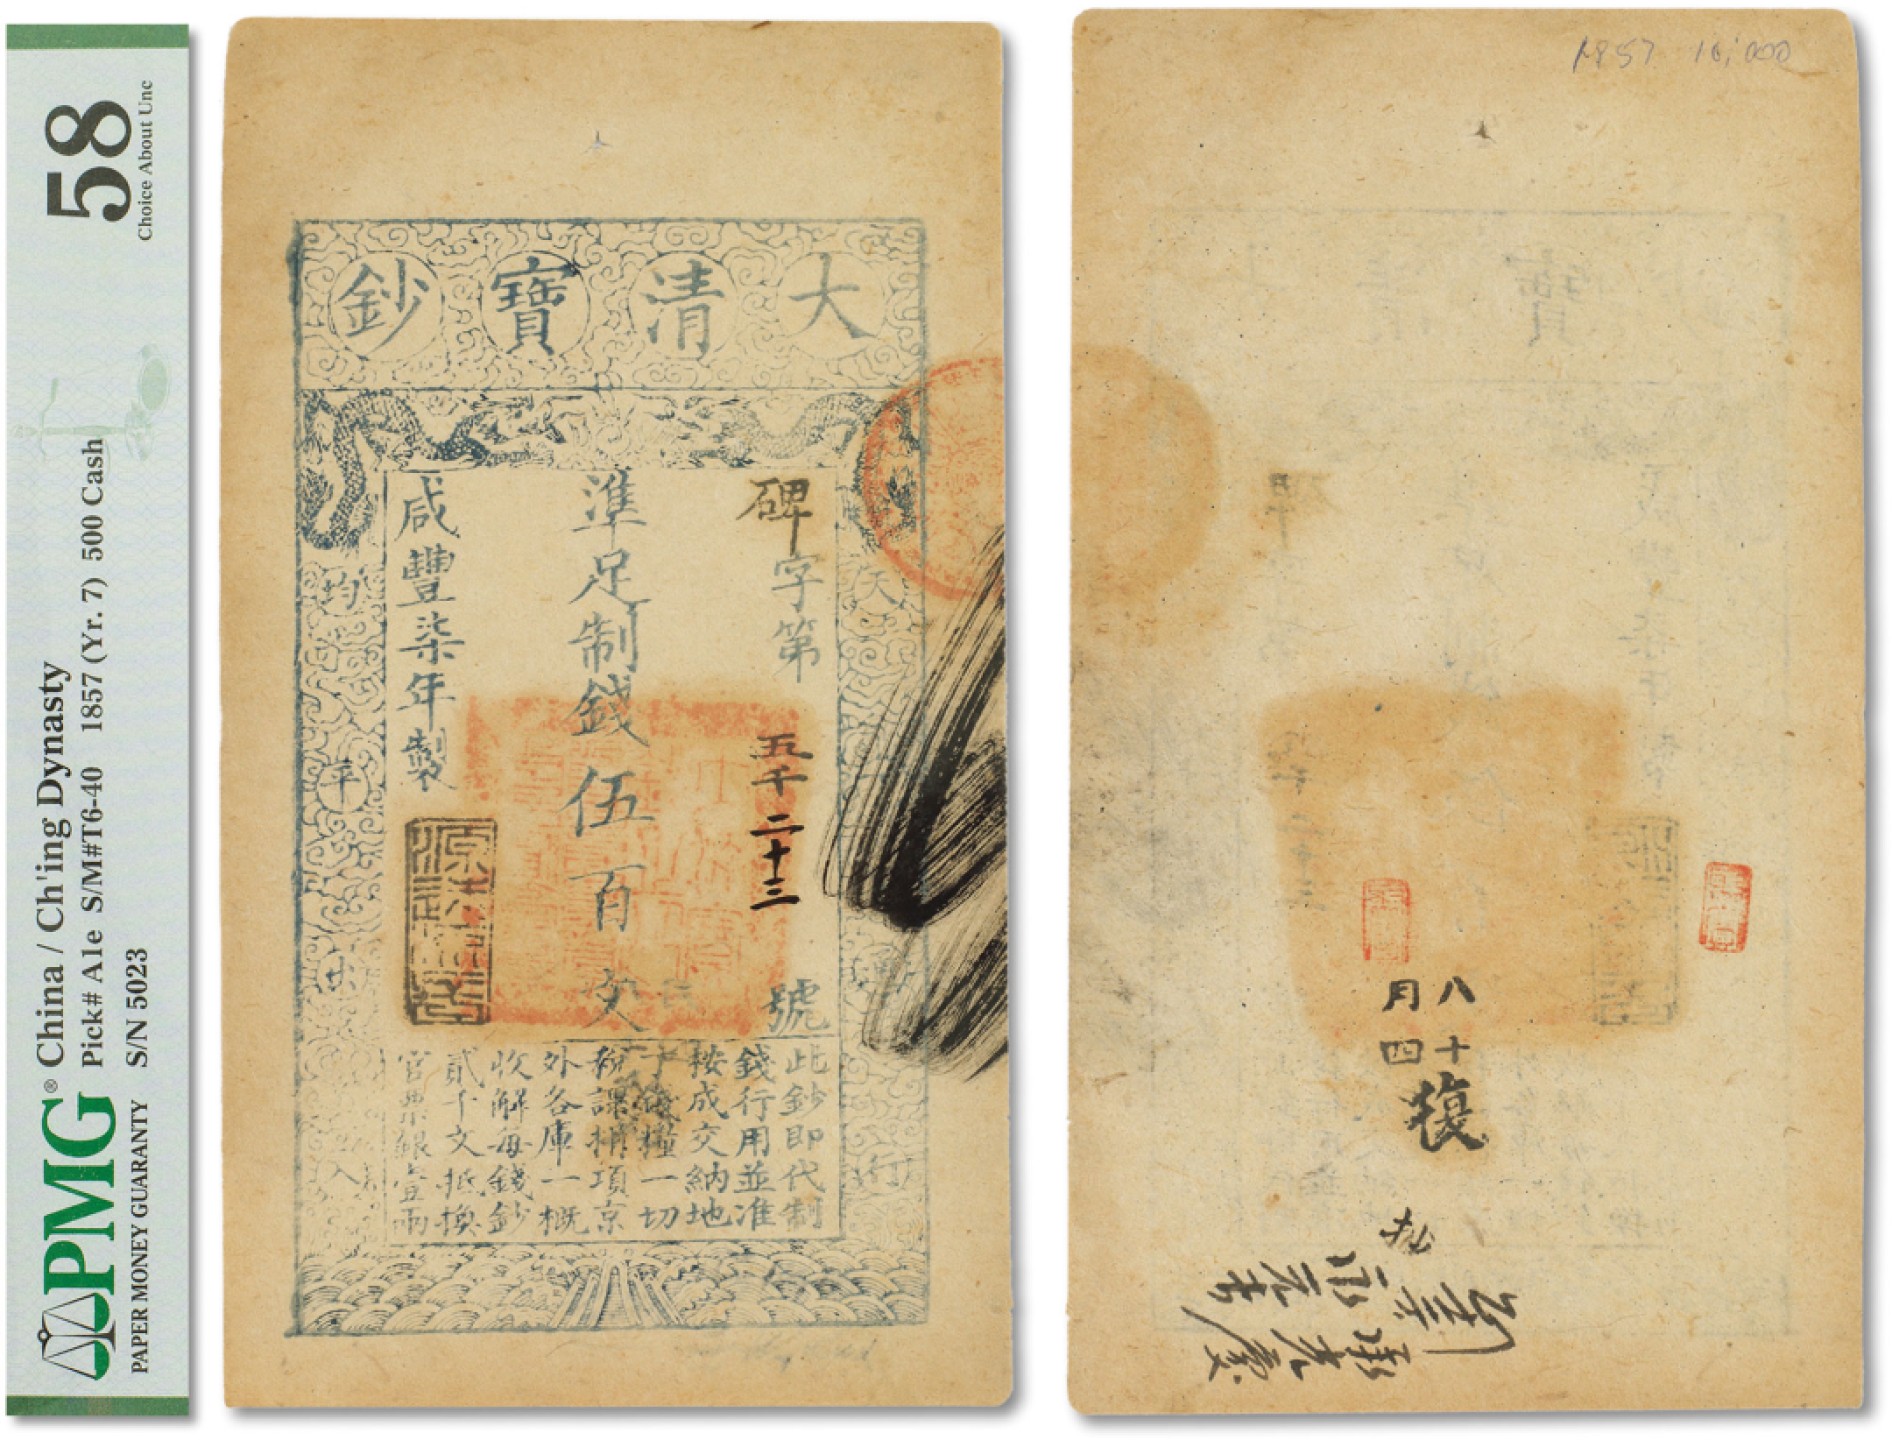 58
Choice About Unc
China / Ch'ing Dynasty
Pick# A1e S/M#T6-40 1857 (Yr. 7) 500 Cash
S/N 5023
PMG®
PAPER MONEY GUARANTY
大清寶鈔
碑字第
五千二十三
號
準足制錢伍百文
咸豐柒年製
天
行
均
平
出
入
此鈔即代制
錢行用並准
按成交納地
丁錢糧一切
稅課捐項京
外各庫一概
收解每錢鈔
貳千文抵換
官票銀壹兩
1857 10,000
八月
十四
復